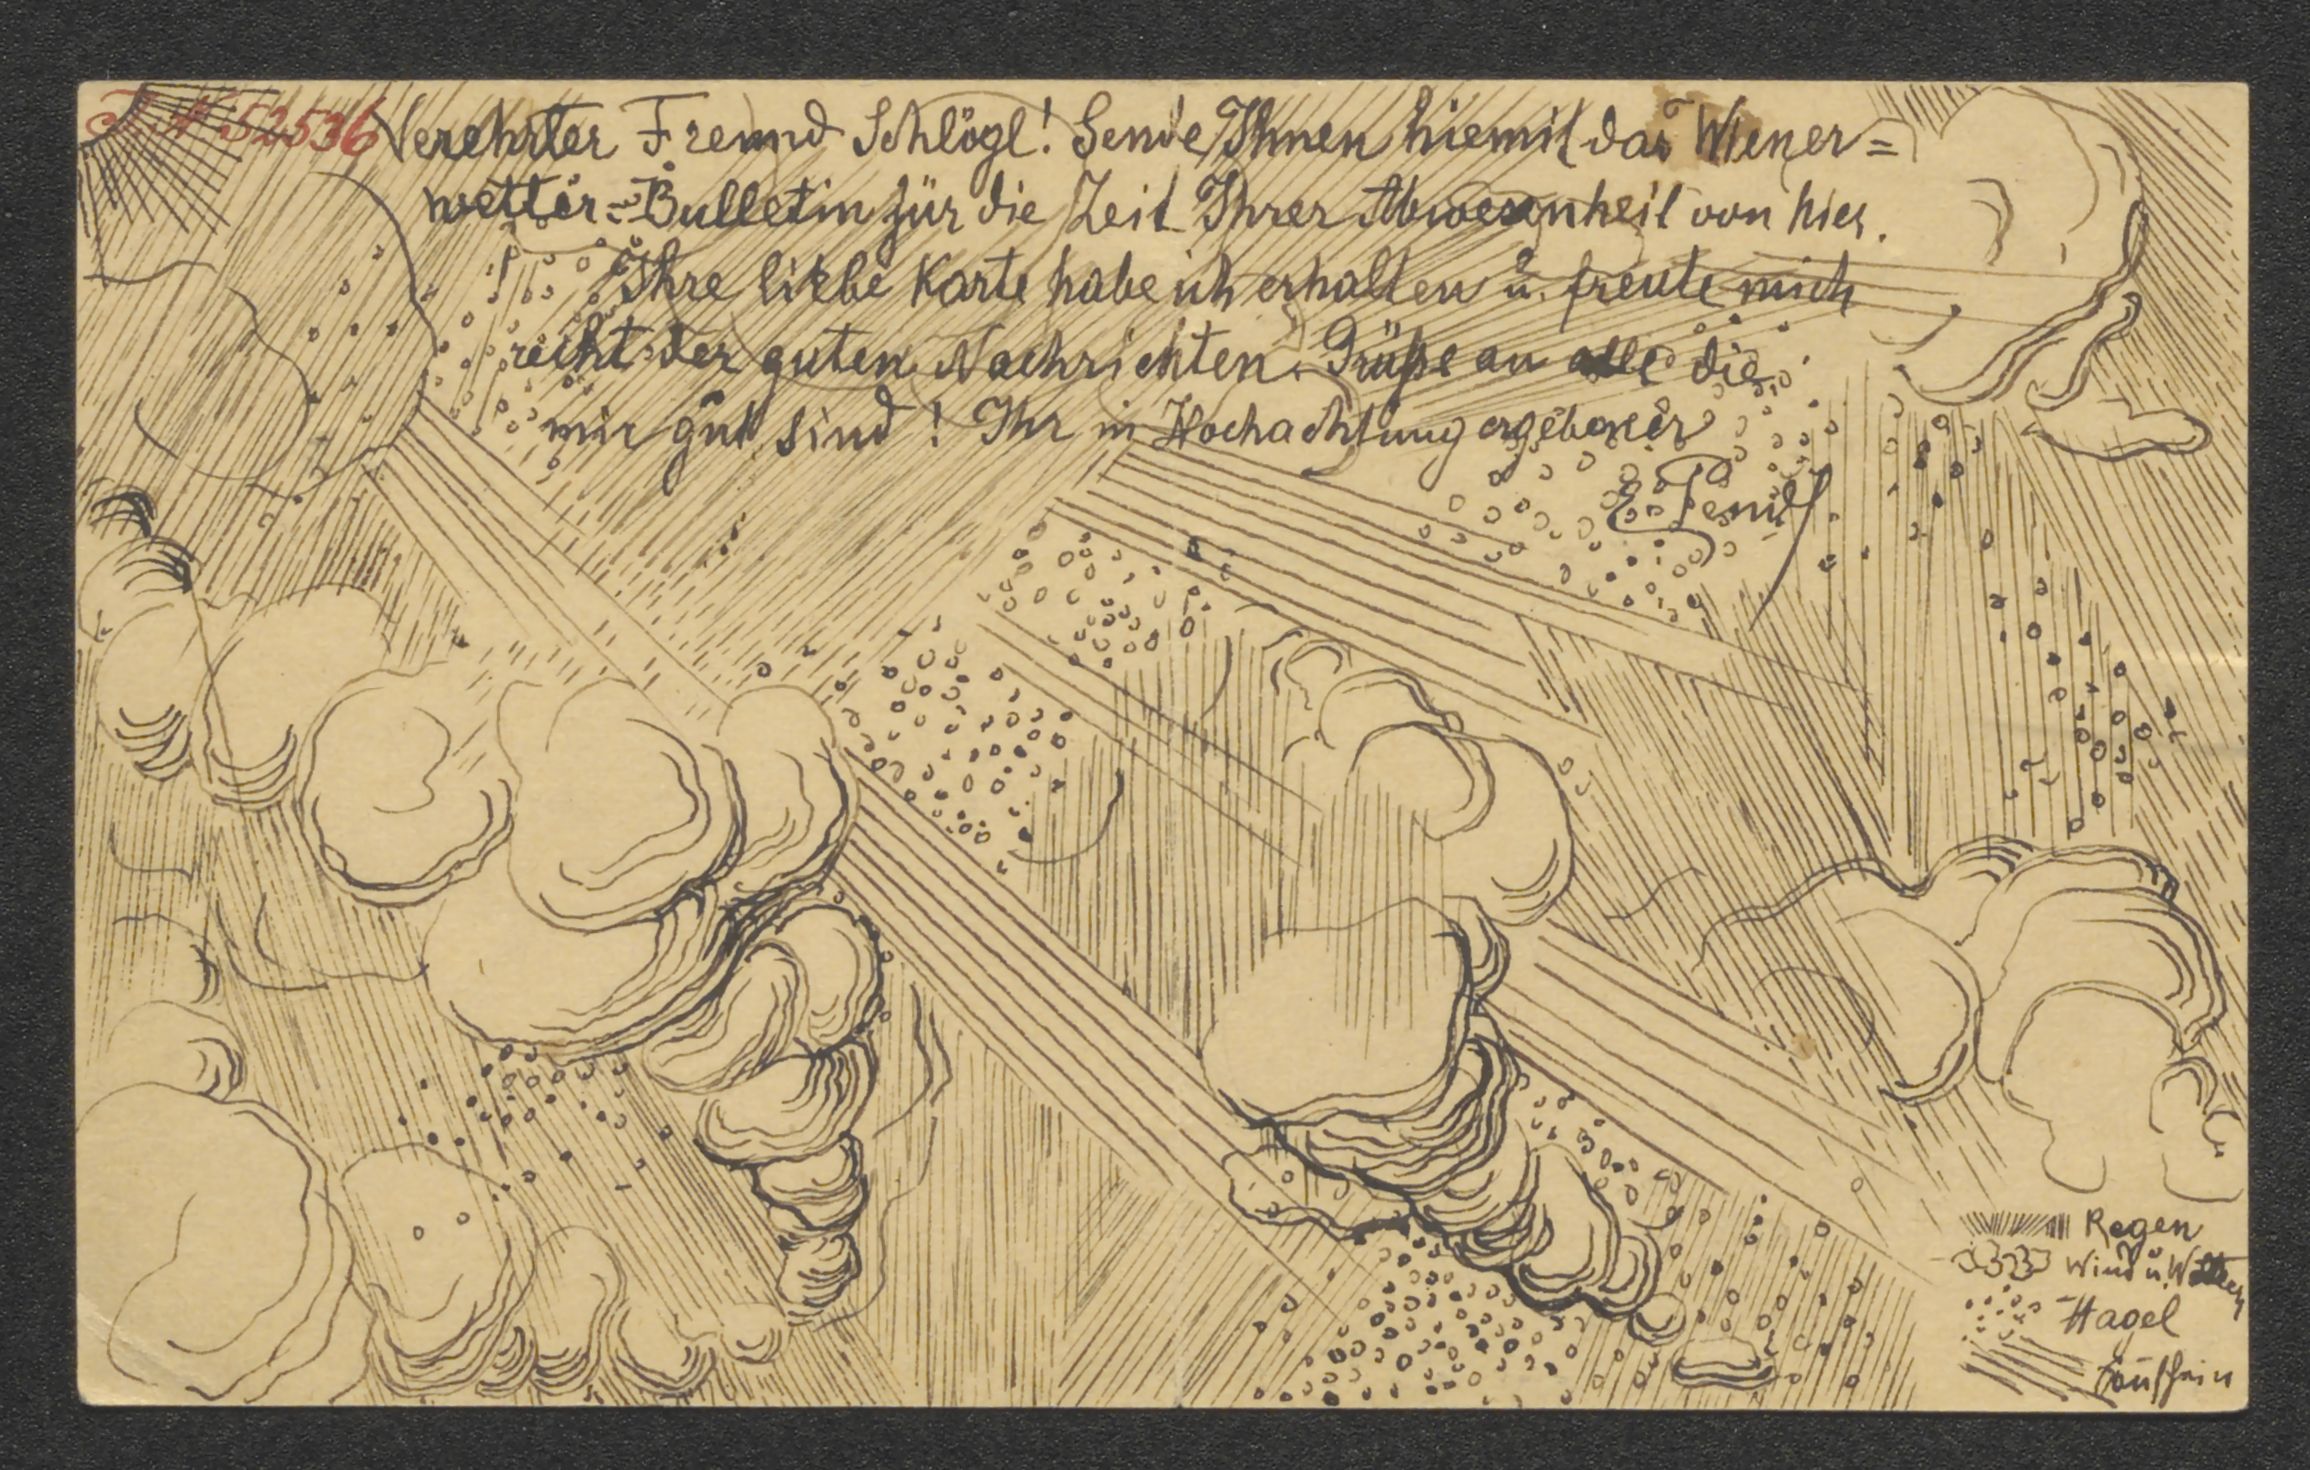 J. N 52536
Verehrter Freund Schlögl! Sende Ihnen hiemit das Wiener=
wetter=Bulletin für die Zeit Ihrer Abwesenheit von hier.
Ihre liebe Karte habe ich erhalten u. freute mich
recht der guten Nachrichten. Grüße an alle die
mir gut sind! Ihr in Hochachtung ergebener
E. Pendl
Regen
Wind u. Wolken
Hagel
Sonnschein